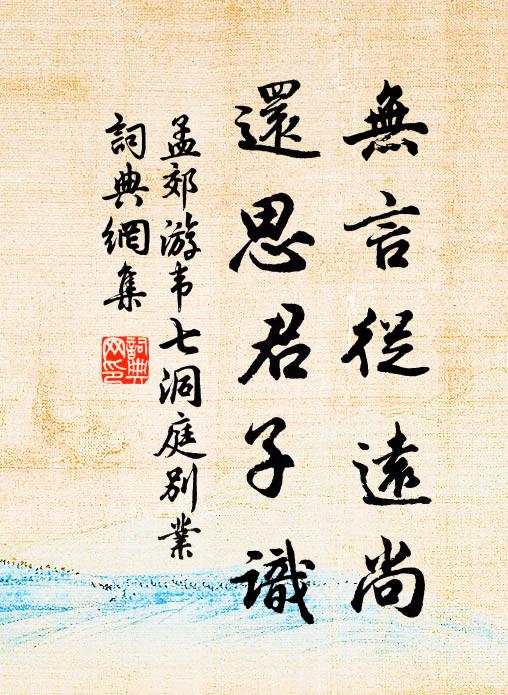 無言從遠尚
還思君子識
孟郊游韦七洞庭别業
詞典網集
詞典
网印